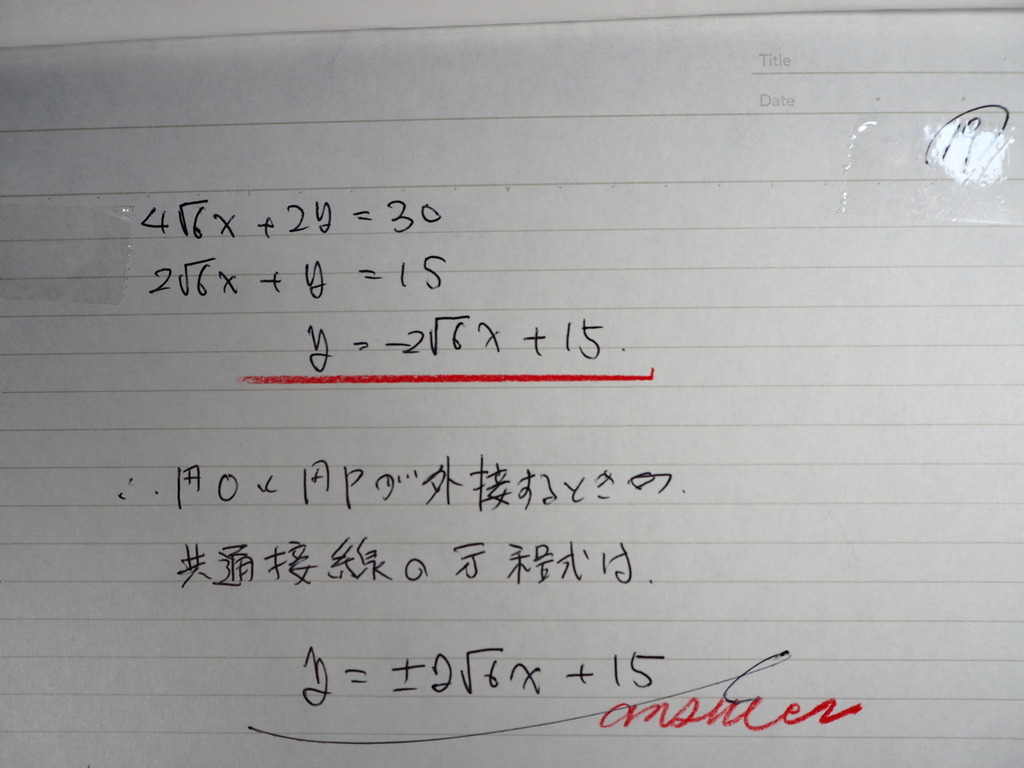 Title
Date
19
4√6x + 2y = 30
2√6x + y = 15
y = -2√6x + 15.
∴ 円Oと円Pが外接するときの.
共通接線の方程式は.
y = ±2√6x + 15
answer